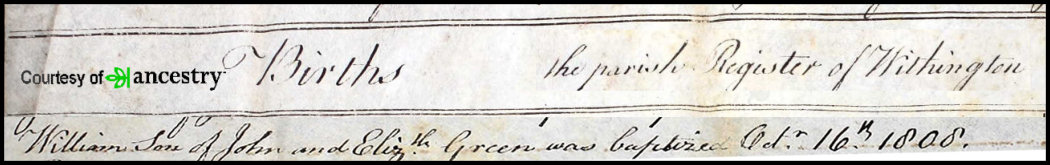 Courtesy of ancestry Births the parish Register of Withington
William Son of John and Elizth. Green was baptized Octr. 16th 1808.